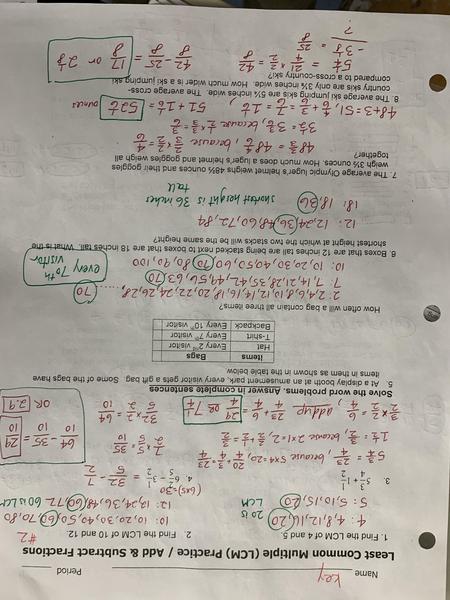 Name Key Period
Least Common Multiple (LCM) Practice / Add & Subtract Fractions
#2
1. Find the LCM of 4 and 5.
2. Find the LCM of 10 and 12.
4: 4, 8, 12, 16, 20
5: 5, 10, 15, 20
20 is LCM
10: 10, 20, 30, 40, 50, 60, 70, 80
12: 12, 24, 36, 48, 60, 72 60 is LCM
3. 5 3/4 + 1 1/2
4. 6 2/5 - 3 1/2
32/5 - 7/2
5 3/4 = 23/4, because 5x4=20, 20/4 + 3/4 = 23/4
1 1/2 = 3/2, because 2x1=2, 2/2 + 1/2 = 3/2
3/2 x 2/2 = 6/4, add up 23/4 + 6/4 = 29/4 or 7 1/4
7/2 x 5/5 = 35/10
32/5 x 2/2 = 64/10
64/10 - 35/10 = 29/10
OR 2.9
Solve the word problems. Answer in complete sentences
5. At a display booth at an amusement park, every visitor gets a gift bag. Some of the bags have
items in them as shown in the table below
Items Bags
Hat Every 2nd visitor
T-shirt Every 7th visitor
Backpack Every 10th visitor
How often will a bag contain all three items?
2: 2, 4, 6, 8, 10, 12, 14, 16, 18, 20, 22, 24, 26, 28, ...... 70
7: 7, 14, 21, 28, 35, 42, 49, 56, 63, 70
10: 10, 20, 30, 40, 50, 60, 70, 80, 90, 100
every 70th visitor
6. Boxes that are 12 inches tall are being stacked next to boxes that are 18 inches tall. What is the
shortest height at which the two stacks will be the same height?
12: 12, 24, 36, 48, 60, 72, 84
18: 18, 36 shortest height is 36 inches tall
7. The average Olympic luger's helmet weighs 48⅔ ounces and their goggles
weigh 3½ ounces. How much does a luger's helmet and goggles weigh all
together?
48 2/3 = 48 4/6, because 2/3 x 2/2 = 4/6
3 1/2 = 3 3/6, because 1/2 x 3/3 = 3/6
48+3=51, 4/6 + 3/6 = 7/6 = 1 1/6, 51 + 1 1/6 = 52 1/6 ounces
8. The average ski jumping skis are 5¼ inches wide. The average cross-
country skis are only 3⅛ inches wide. How much wider is a ski jumping ski
compared to a cross-country ski?
5 1/4 = 21/4 x 2/2 = 42/8
- 3 1/8 = 25/8
?
42/8 - 25/8 = 17/8 or 2 1/8